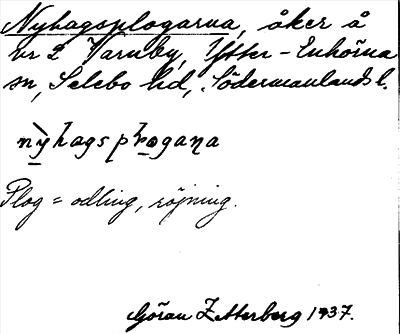 Nyhagsplogarna, åker å
nr 2 Varnby, Ytter-Enhörna
sn, Selebo hd, Södermanlands l.
nyhagsplogana
Plog = odling, röjning.
Göran Zetterberg 1937.